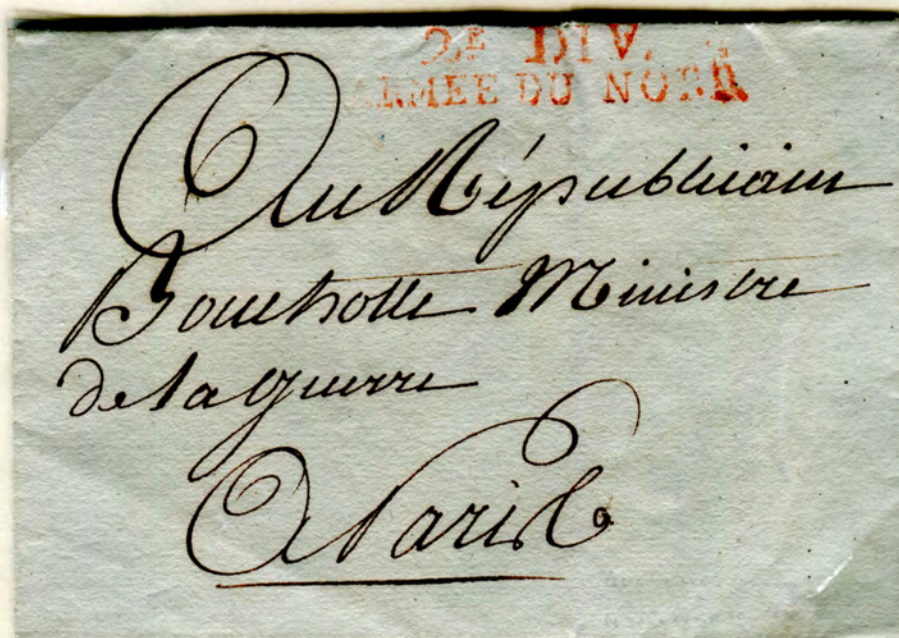 2.E DIV.
ARMEE DU NORD
Au Républicain
Bouchotte Ministre
de la guerre
A Paris